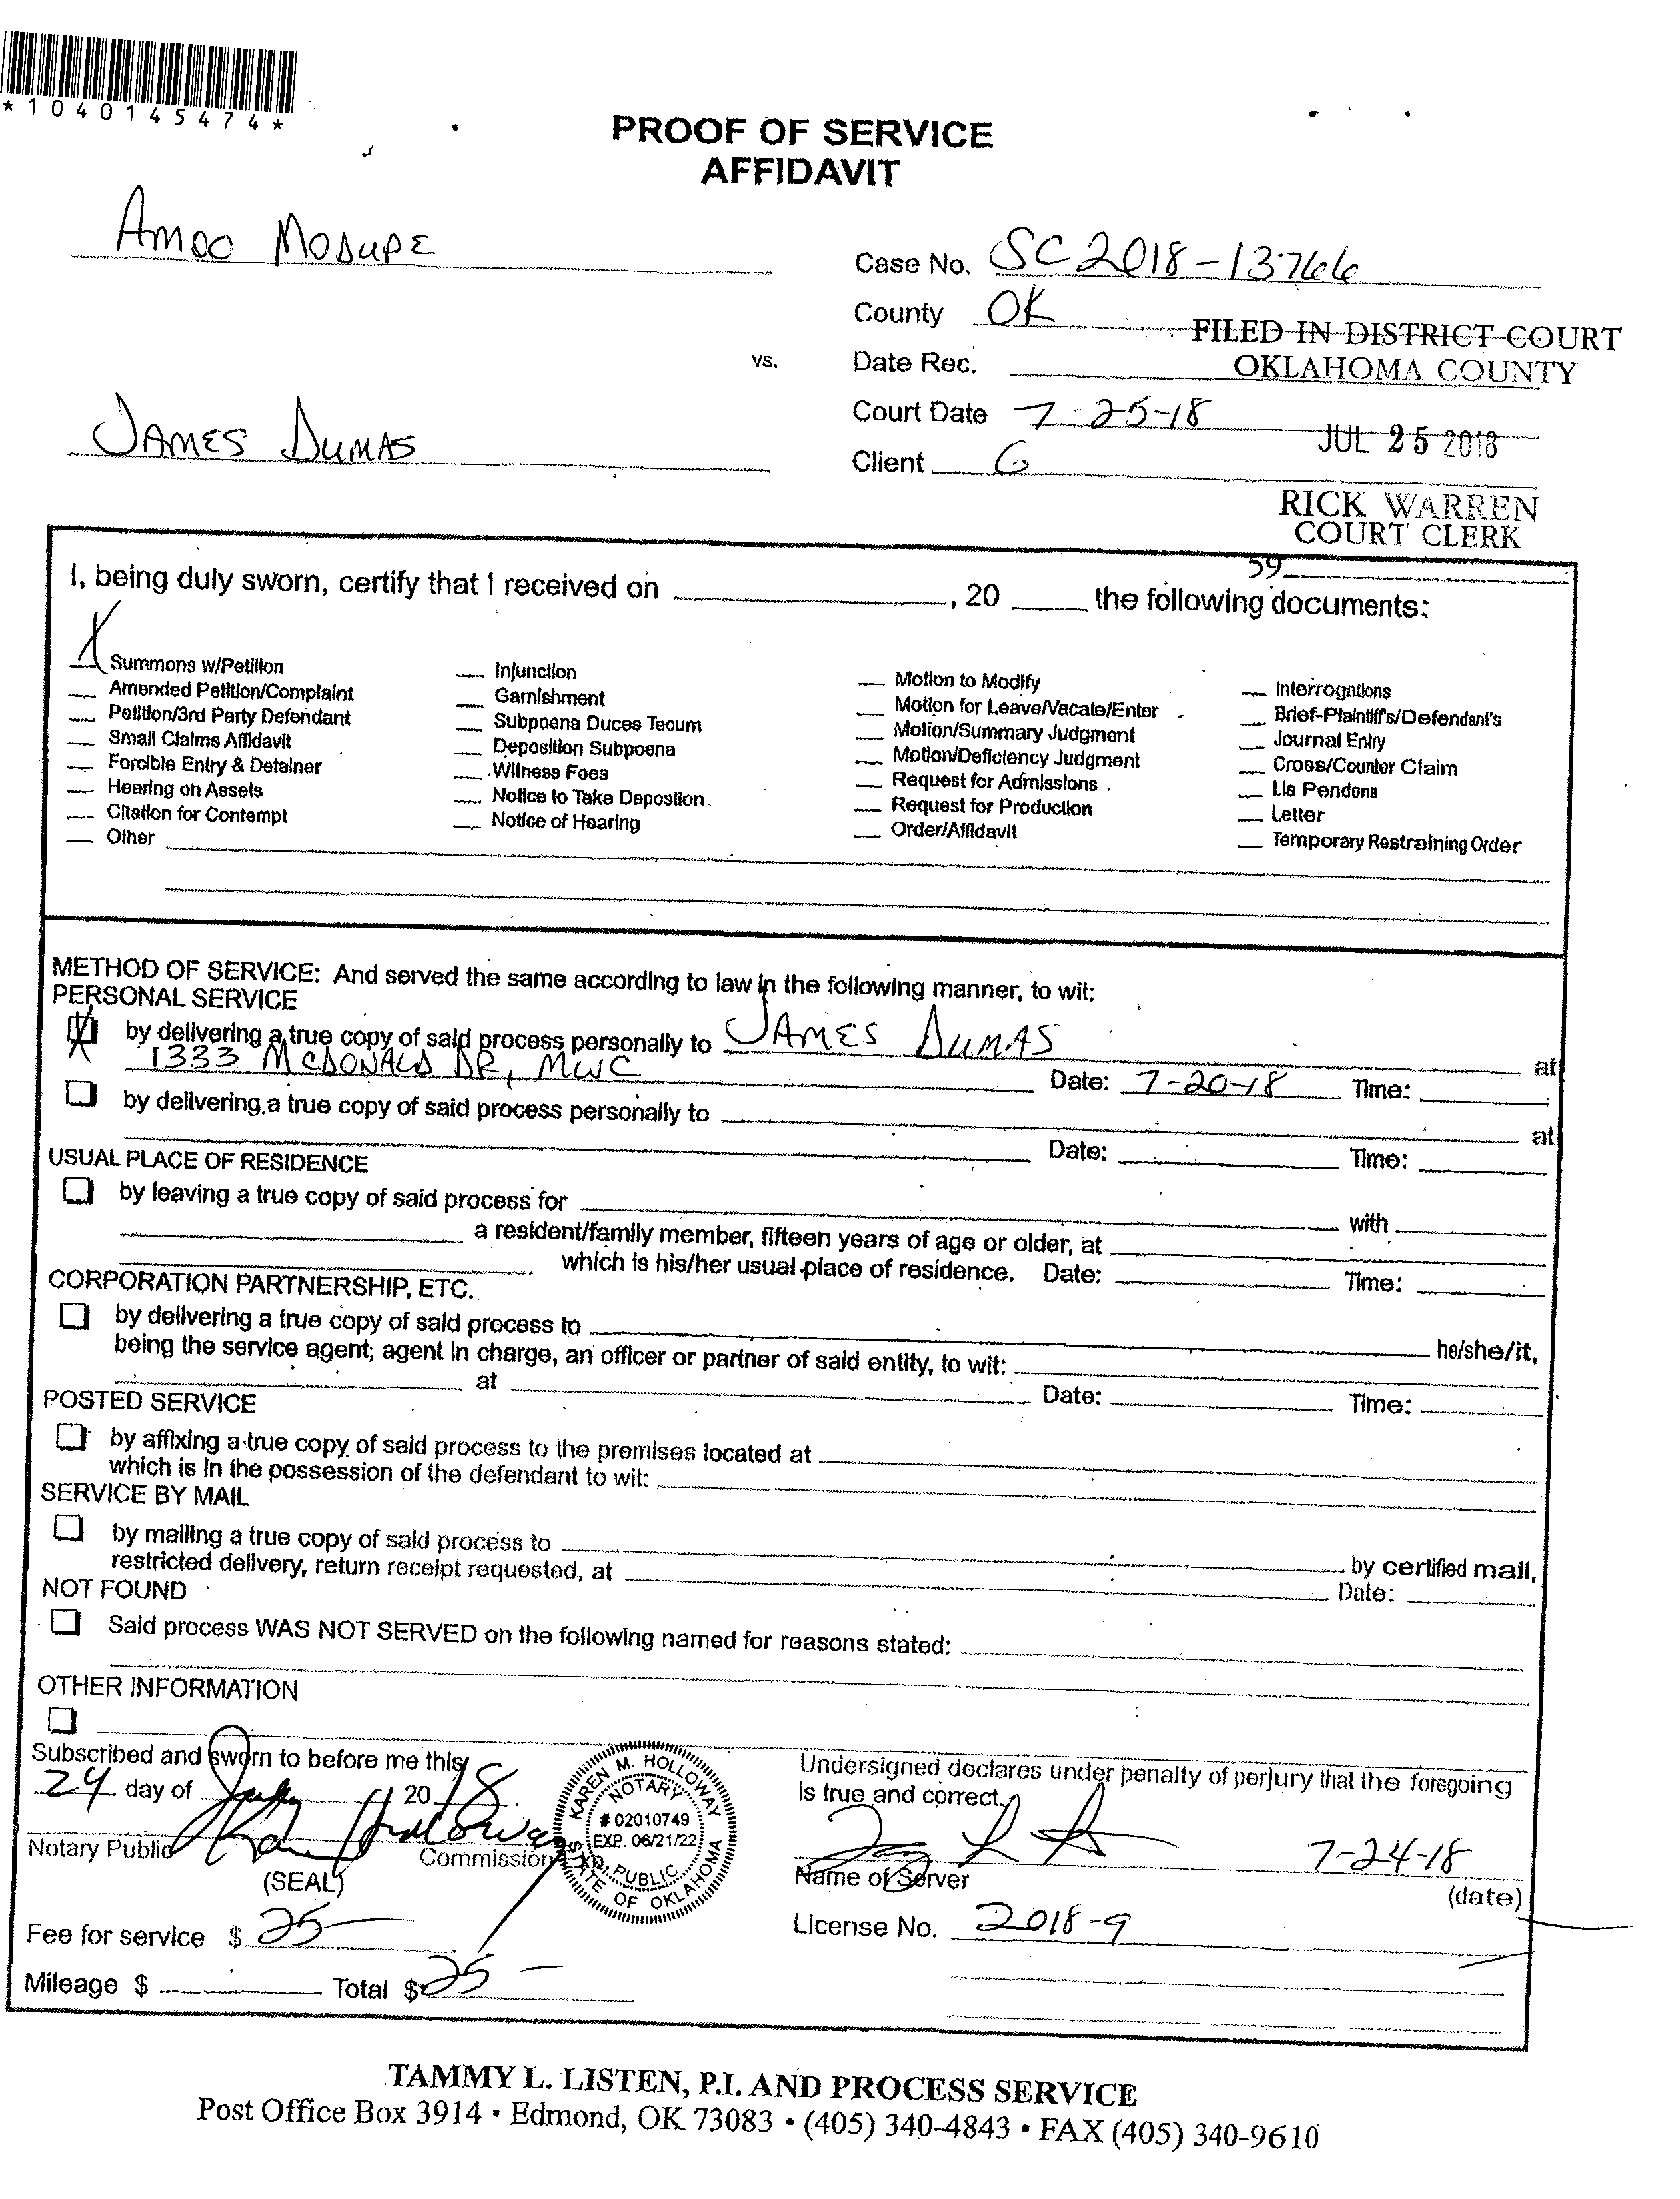 *1040145474*
PROOF OF SERVICE
AFFIDAVIT
AMOO MODUPE
Case No. SC2018-13766
County OK
FILED IN DISTRICT COURT
OKLAHOMA COUNTY
vs.
Date Rec.
Court Date 7-25-18
JUL 25 2018
JAMES DUMAS
Client G
RICK WARREN
COURT CLERK
59
I, being duly sworn, certify that I received on ____, 20 ____ the following documents:
X Summons w/Petition
Amended Petition/Complaint
Petition/3rd Party Defendant
Small Claims Affidavit
Forcible Entry & Detainer
Hearing on Assets
Citation for Contempt
Other
Injunction
Garnishment
Subpoena Duces Tecum
Deposition Subpoena
Witness Fees
Notice to Take Depostion.
Notice of Hearing
Motion to Modify
Motion for Leave/Vacate/Enter
Motion/Summary Judgment
Motion/Deficiency Judgment
Request for Admissions
Request for Production
Order/Affidavit
Interrogations
Brief-Plaintiff's/Defendant's
Journal Entry
Cross/Counter Claim
Lis Pendens
Letter
Temporary Restraining Order
METHOD OF SERVICE: And served the same according to law in the following manner, to wit:
PERSONAL SERVICE
X by delivering a true copy of said process personally to JAMES DUMAS at
1333 MCDONALD DR, MWC Date: 7-20-18 Time:
by delivering a true copy of said process personally to ____ at
Date: ____ Time:
USUAL PLACE OF RESIDENCE
by leaving a true copy of said process for ____ with
a resident/family member, fifteen years of age or older, at
which is his/her usual place of residence. Date: ____ Time:
CORPORATION PARTNERSHIP, ETC.
by delivering a true copy of said process to ____ he/she/it,
being the service agent; agent in charge, an officer or partner of said entity, to wit:
at ____ Date: ____ Time:
POSTED SERVICE
by affixing a true copy of said process to the premises located at
which is in the possession of the defendant to wit:
SERVICE BY MAIL
by mailing a true copy of said process to ____ by certified mail,
restricted delivery, return receipt requested, at ____ Date:
NOT FOUND
Said process WAS NOT SERVED on the following named for reasons stated:
OTHER INFORMATION
Subscribed and sworn to before me this
24 day of July 2018
Notary Public Commission Exp.
(SEAL)
KAREN M. HOLLOWAY
NOTARY
# 02010749
EXP. 06/21/22
PUBLIC
STATE OF OKLAHOMA
Fee for service $ 25—
Mileage $ ____ Total $ 25—
Undersigned declares under penalty of perjury that the foregoing
is true and correct.
7-24-18
Name of Server (date)
License No. 2018-9
TAMMY L. LISTEN, P.I. AND PROCESS SERVICE
Post Office Box 3914 • Edmond, OK 73083 • (405) 340-4843 • FAX (405) 340-9610